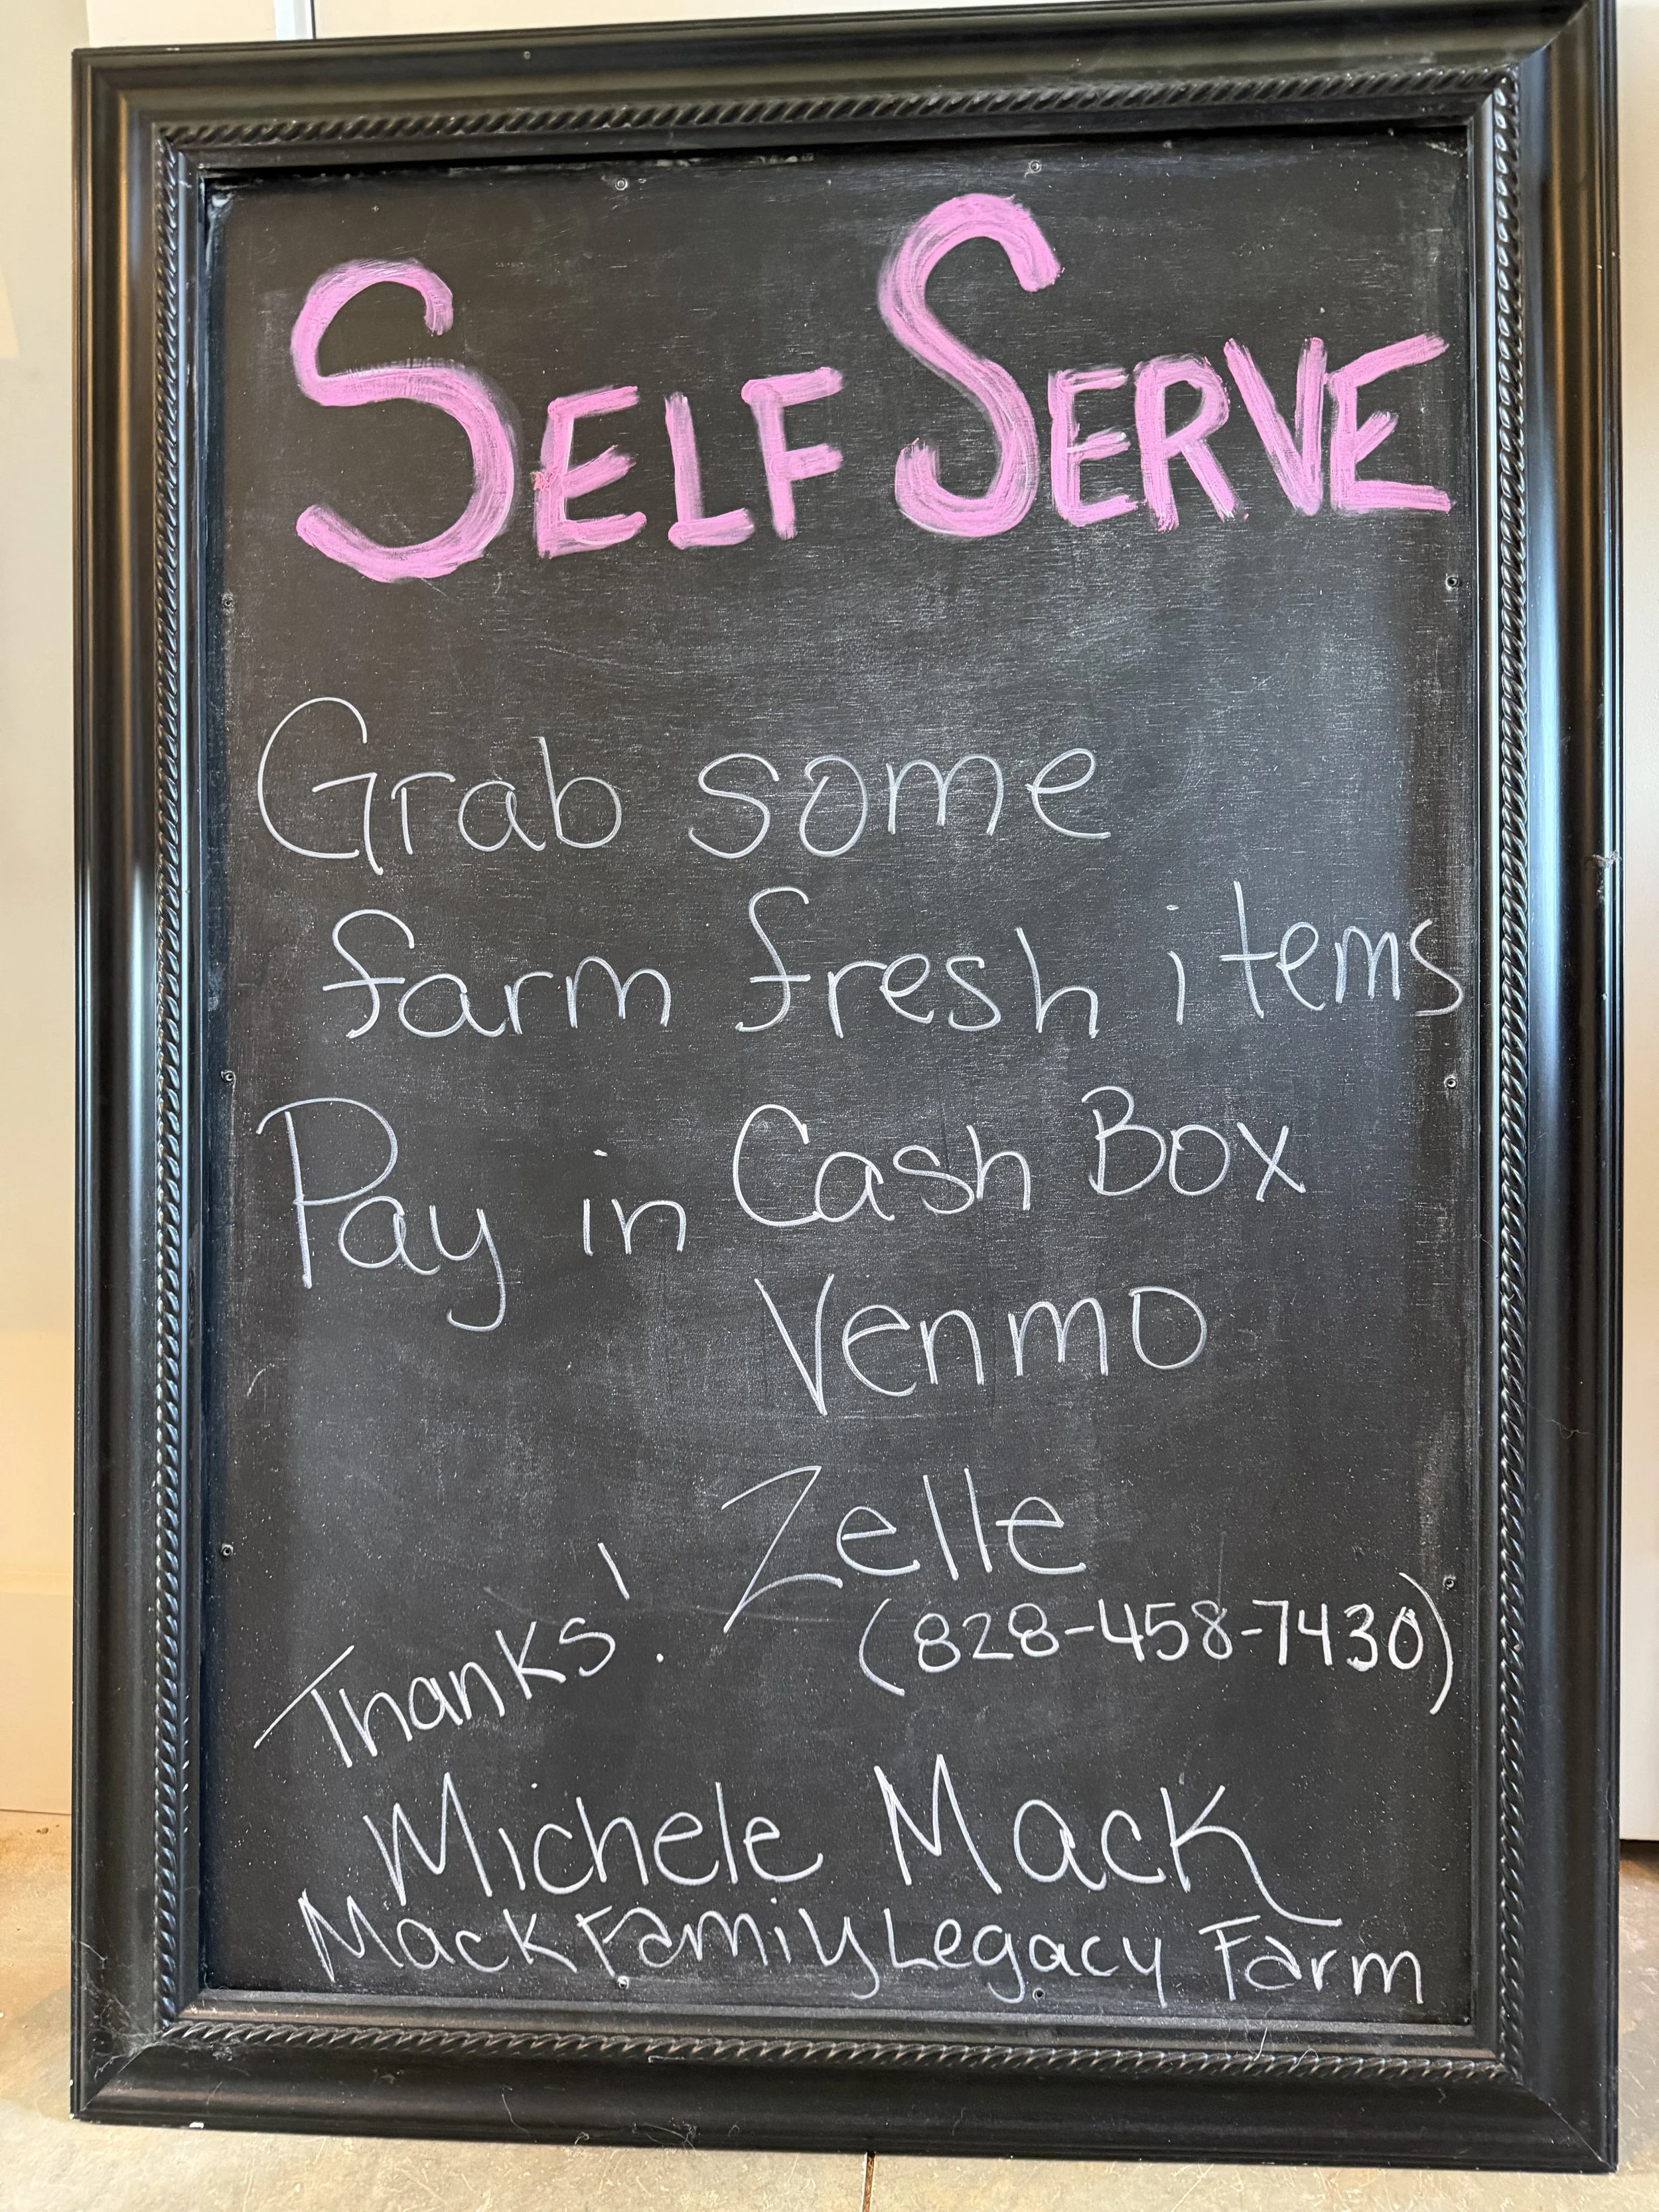 SELF SERVE
Grab some
farm fresh items
Pay in Cash Box
Venmo
Zelle
(828-458-7430)
Thanks!
Michele Mack
Mack Family Legacy Farm